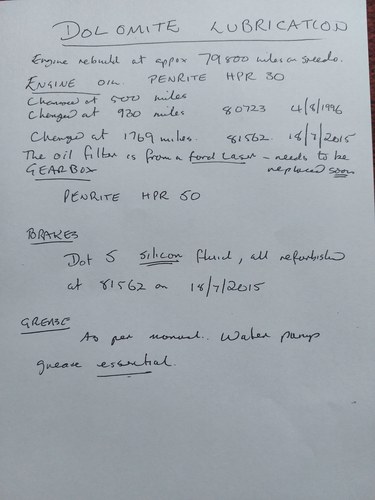 DOLOMITE LUBRICATION
Engine rebuild at appox 79800 miles on speedo.
ENGINE OIL. PENRITE HPR 30
Changed at 500 miles
Changed at 930 miles 80723 4/8/1996
Changed at 1769 miles. 81562 18/7/2015
The oil filter is from a Ford Laser - needs to be
GEARBOX replaced soon
PENRITE HPR 50
BRAKES
Dot 5 silicon fluid, all refurbished
at 81562 on 18/7/2015
GREASE
As per manual. Water pump
grease essential.